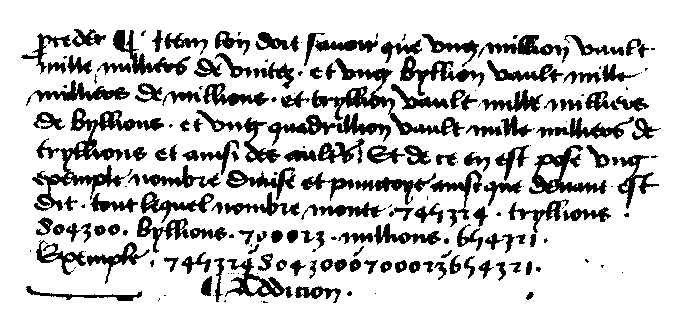 proceder ¶ Item lon doit savoir que vng million vault
mille milliers de vnitez · et vng byllion vault mille
milliers de millions · et tryllion vault mille milliers
de byllions · et vng quadrillion vault mille milliers de
tryllions et ainsi des aultres Et de ce en est pose vng
exemple nombre diuise et punctoye ainsi que deuant est
dit · tout lequel nombre monte · 745324 · tryllions ·
804300 · byllions · 700023 · millions · 654321 ·
Exemple · 745324'804300'700023'654321 ·
¶ Addicion ·